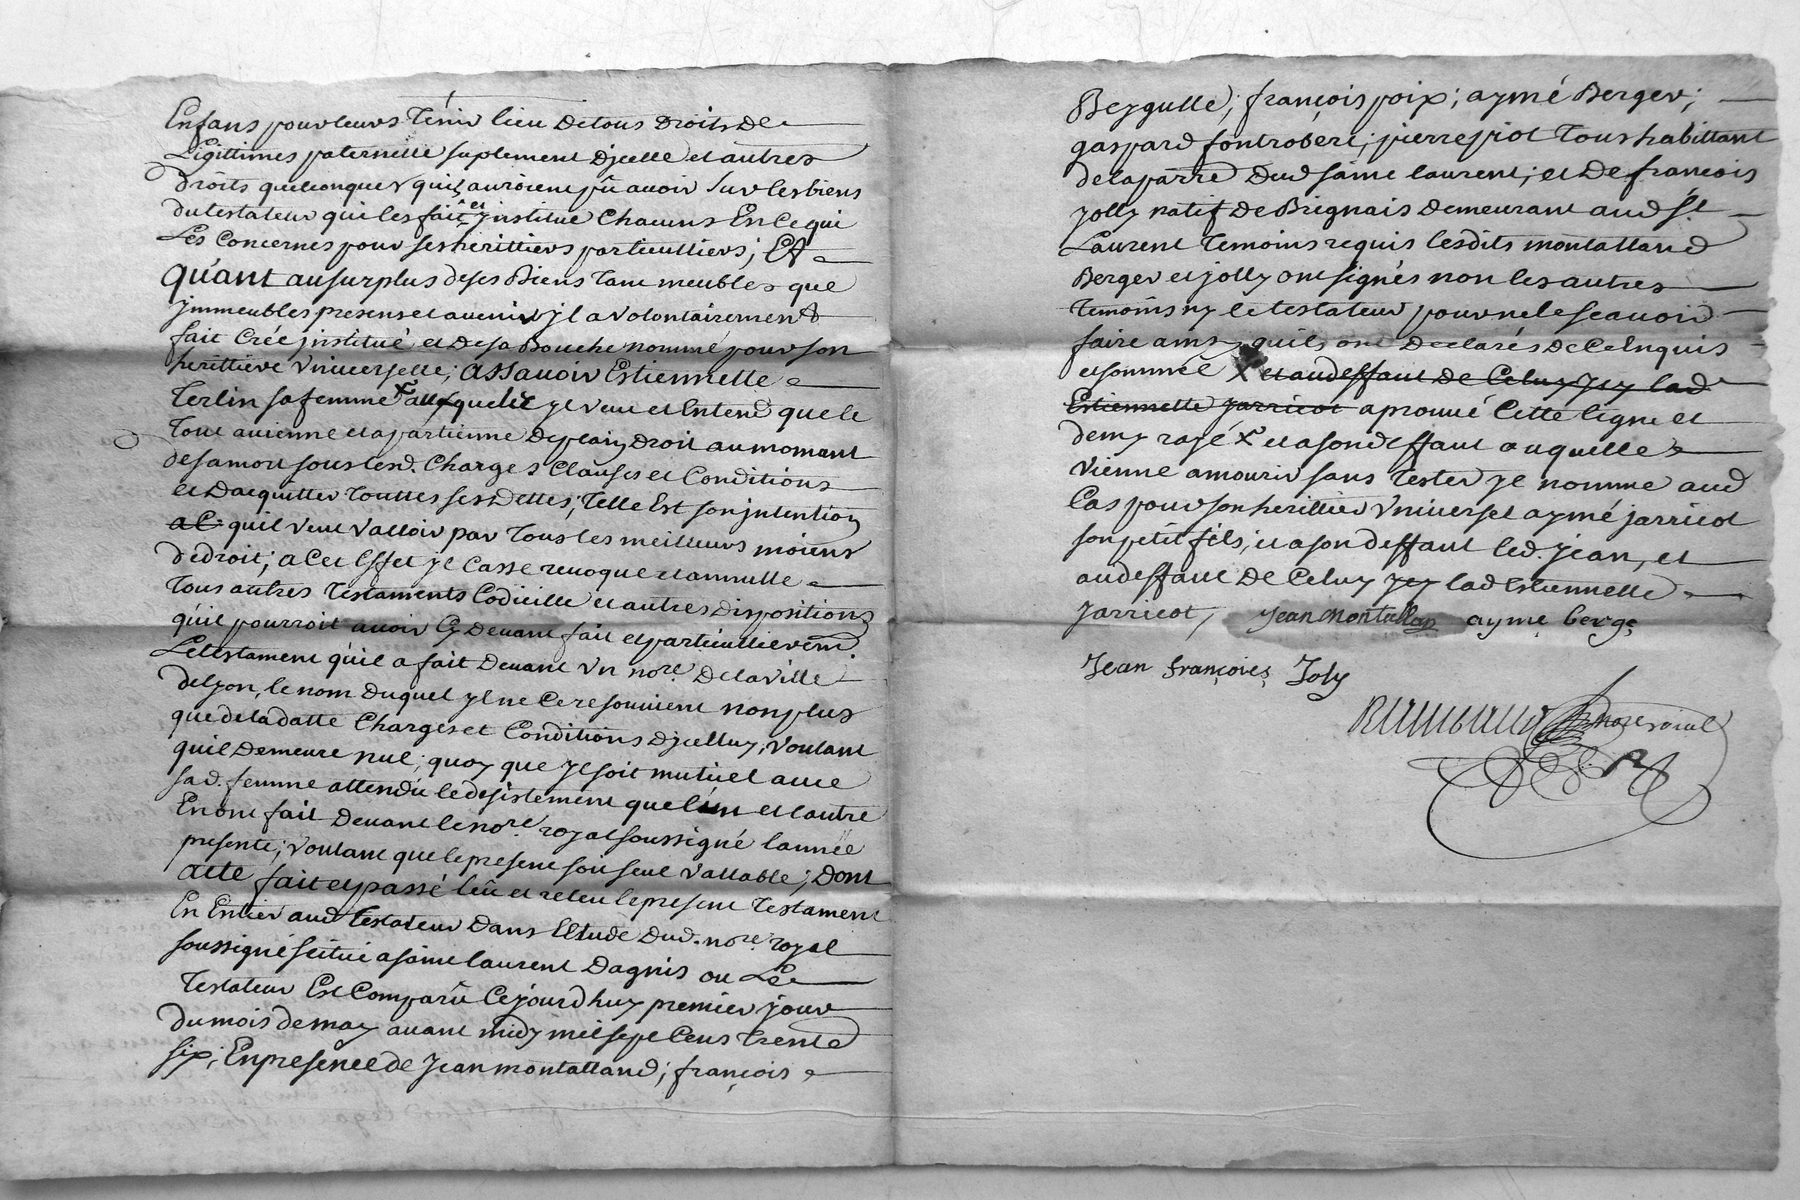 Enfans pour leurs Tenir lieu de tous Droits De
Ligittimes paternelle suplement Djcelle et autres
droits quelconques quilz auroient pû avoir sur les biens
du testateur qui les fait et jnstitue Chacuns En ce qui
Les Concernes pour ses herittiers particulliers; Et
quant au surplus de ses Biens tant meubles que
jmmeubles presens et avenir yl a volontairement
fait Créé jnstitué et de sa Bouche nommé pour son
herittiere Universelle; assavoir Estiennette
Terlin sa femme X a laquelle yl veut et Entend que le
Tout avienne et apartienne De plain Droit au moment
de sa mort sous lesd. Charges Clauses et Conditions
et Dacquitter Touttes ses Dettes; Telle Est son jntention
a C quil veut valloir par Tous les meilleurs moiens
de droit; a Cet Effet yl Casse revoque et annulle
Tous autres Testaments Codicille et autres dispositions
quil pourroit avoir Cy Devant fait et particullierem.
Le testament quil a fait Devant Un nore. De la ville
de lyon, le nom Duquel yl ne Ce resouvient non plus
que de la datte Charges et Conditions Djcelluy, voulant
quil Demeure nul; quoy que yl soit mutuel avec
sad. femme attendu le desistement que l'un et l'autre
En ont fait Devant le nore. royal soussigné l'année
presente; voulant que le present soit seul vallable; Dont
acte fait et passé leû et releu le present Testament
En Entier aud Testateur Dans lEtude Dud. nore. royal
soussigné scitué a saint laurent Dagnis ou Le
Testateur Est Comparû Cejourdhuy premier jour
du mois de may avant midy mil sept Cens trente
six; En presence de Jean montalland; françois
Beygulle; françois poix; aymé Berger;
gaspard fontrobert; pierre piot Tous habittant
de la parre Dud saint laurent; et De françois
jolly natif De Brignais Demeurant aud St.
Laurent Temoins requis lesdits montalland
Berger et jolly ont signés non les autres
temoins ny le testateur pour ne le scavoir
faire ainsy quils ont Declarés De Ce Enquis
et sommé X et au deffaut De Celuy jcy lad
Estiennette jarricot aprouvé Cette ligne et
demy rayé X et a son deffaut ou quelle
vienne a mourir sans Tester yl nomme aud
Cas pour son herittier Universel aymé jarricot
son petit fils; et a son deffaut led. jean, et
au deffaut De Celuy jcy lad Estiennette
jarricot, Jean Montallan ayme berge
Jean françoies Joly